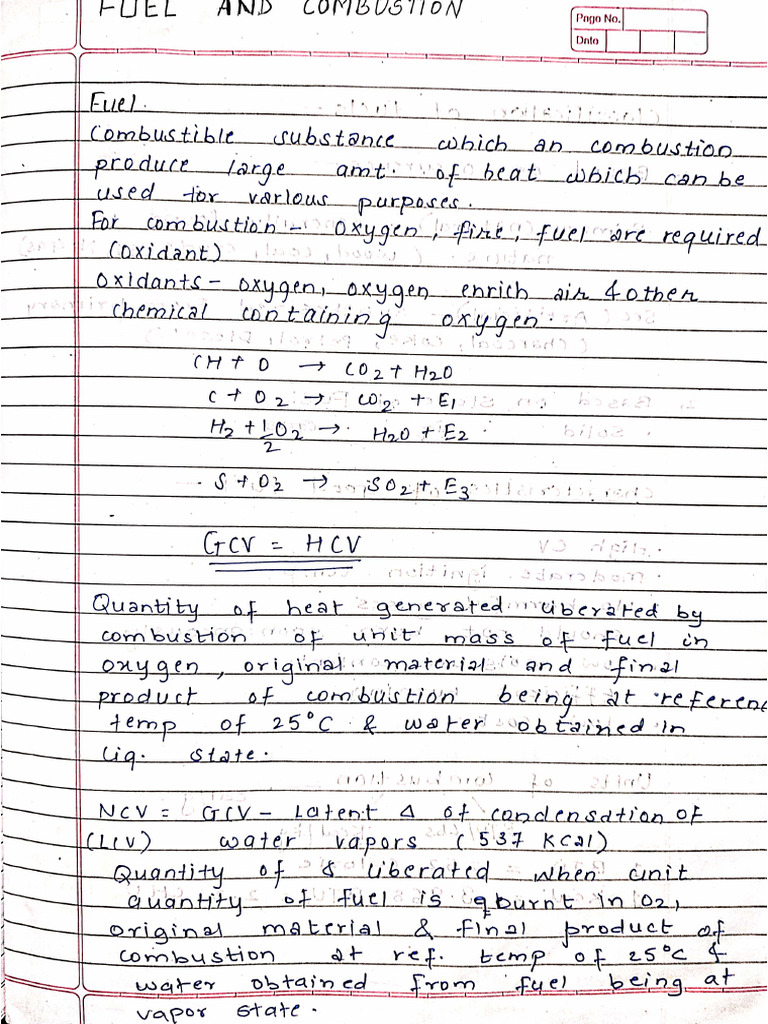 FUEL AND COMBUSTION
Page No.
Date
Fuel.
Combustible substance which an combustion
produce large amt. of heat which can be
used for various purposes.
For combustion - oxygen, fire, fuel are required
(oxidant)
Oxidants - oxygen, oxygen enrich air & other
chemical containing oxygen.
CH + O → CO2 + H2O
C + O2 → CO2 + E1
H2 + 1/2 O2 → H2O + E2
S + O2 → SO2 + E3
GCV = HCV
Quantity of heat generated liberated by
combustion of unit mass of fuel in
oxygen, original material and final
product of combustion being at referenc
temp of 25°C & water obtained in
liq. state.
NCV = GCV - Latent Δ of condensation of
(LCV) water vapors (537 KCal)
Quantity of & liberated when unit
quantity of fuel is burnt in O2,
original material & final product of
combustion at ref. temp of 25°C &
water obtained from fuel being at
vapor state.